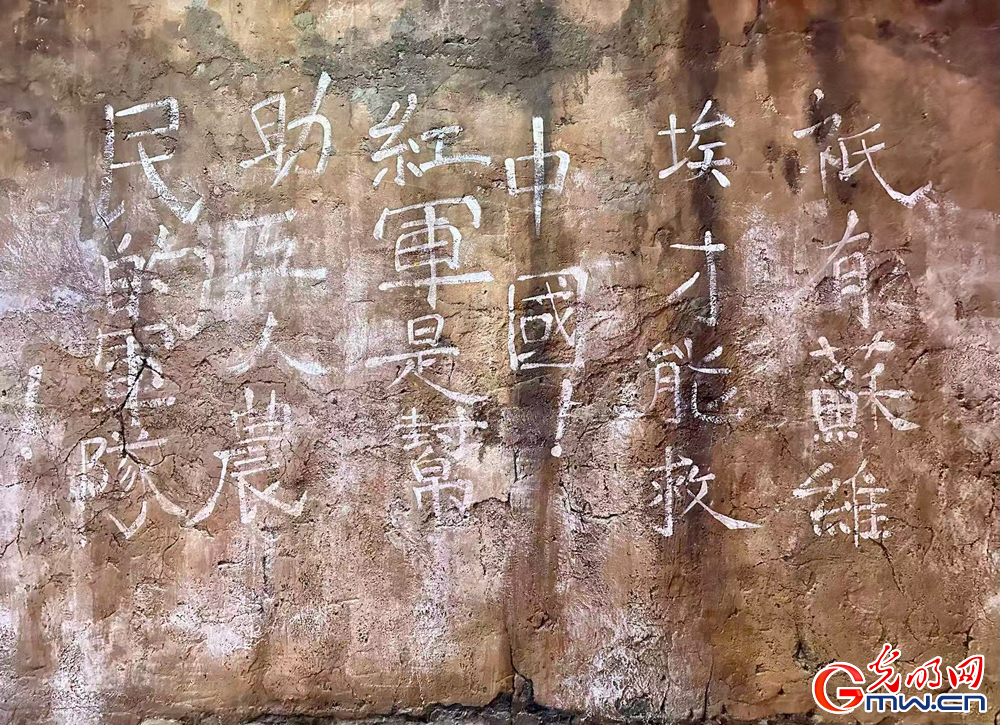 祇有蘇維
埃才能救
中國！
紅軍是幫
助工人農
民的軍隊
！
光明网
GMW.cn